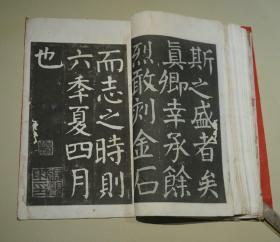 斯之盛者矣
真卿幸承餘
烈敢刻金石
而志之時則
六季夏四月
也